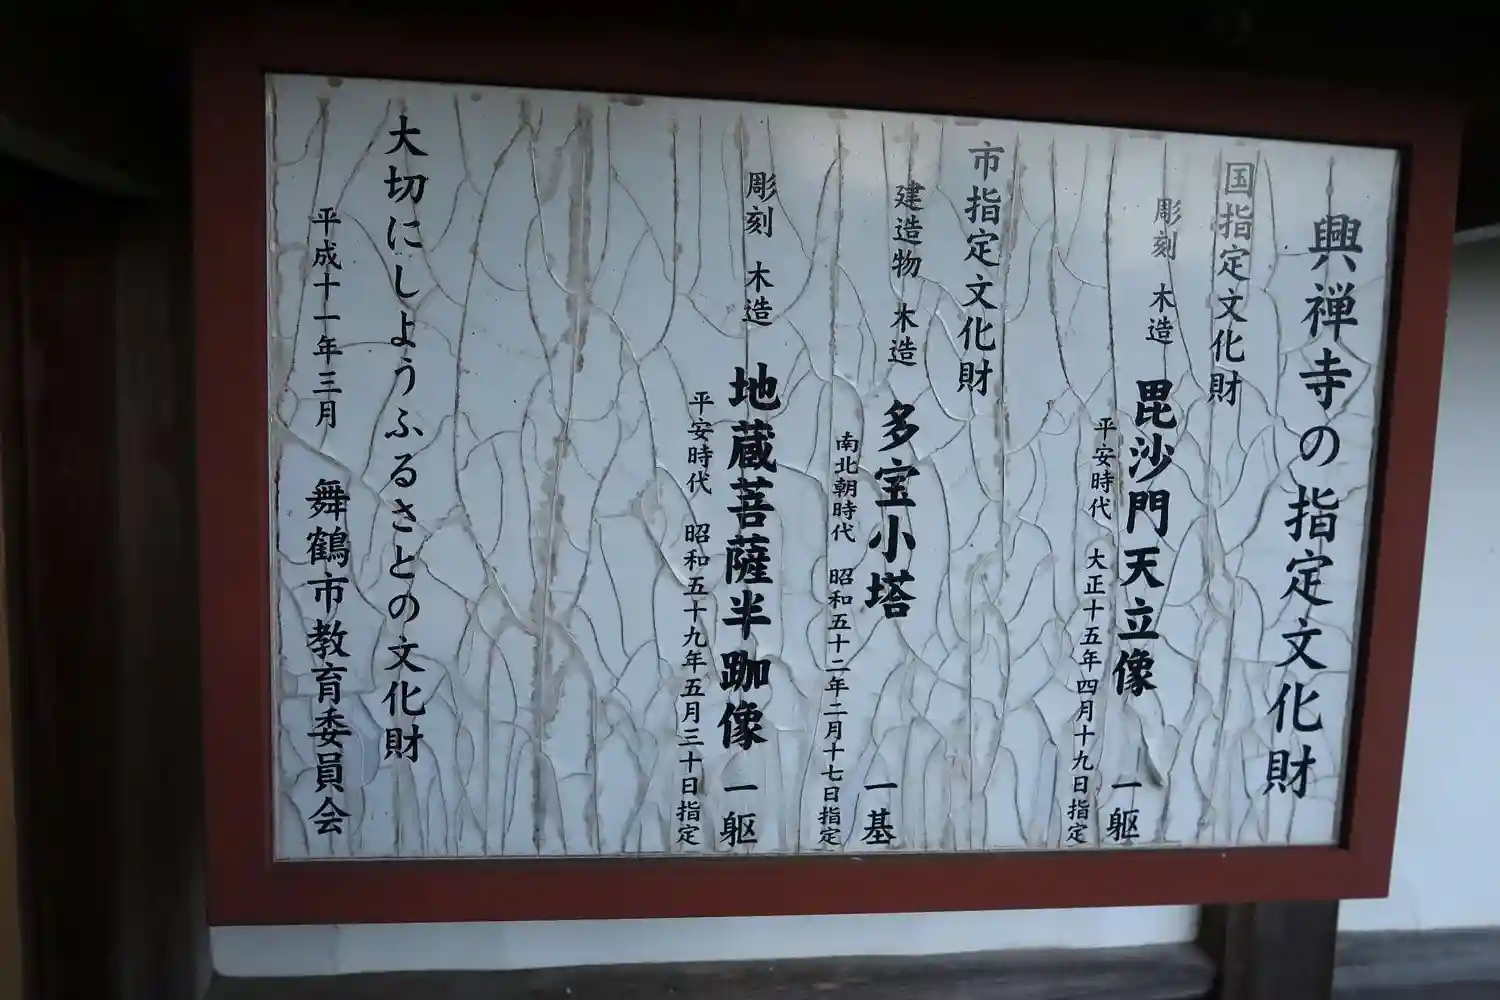 興禅寺の指定文化財
国指定文化財
彫刻 木造 毘沙門天立像 一躯
平安時代 大正十五年四月十九日指定
市指定文化財
建造物 木造 多宝小塔 一基
南北朝時代 昭和五十二年二月十七日指定
彫刻 木造 地蔵菩薩半跏像 一躯
平安時代 昭和五十九年五月三十日指定
大切にしようふるさとの文化財
平成十一年三月 舞鶴市教育委員会